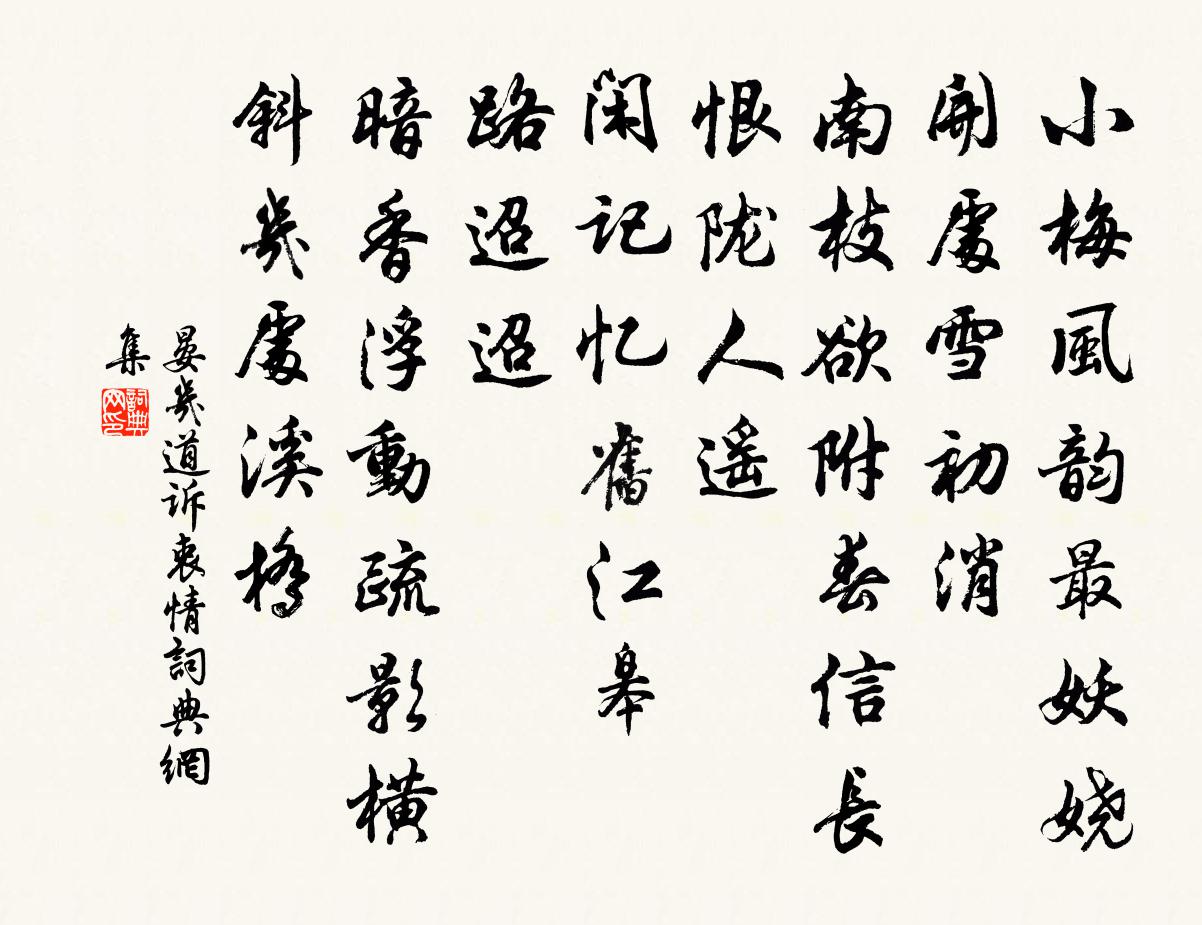 小梅風韵最妖娆
開處雪初消
南枝欲附春信長
恨陇人遥
闲记忆舊江皋
路迢迢
暗香浮動疏影橫
斜幾處溪橋
晏幾道诉衷情詞典網
集
詞典网印